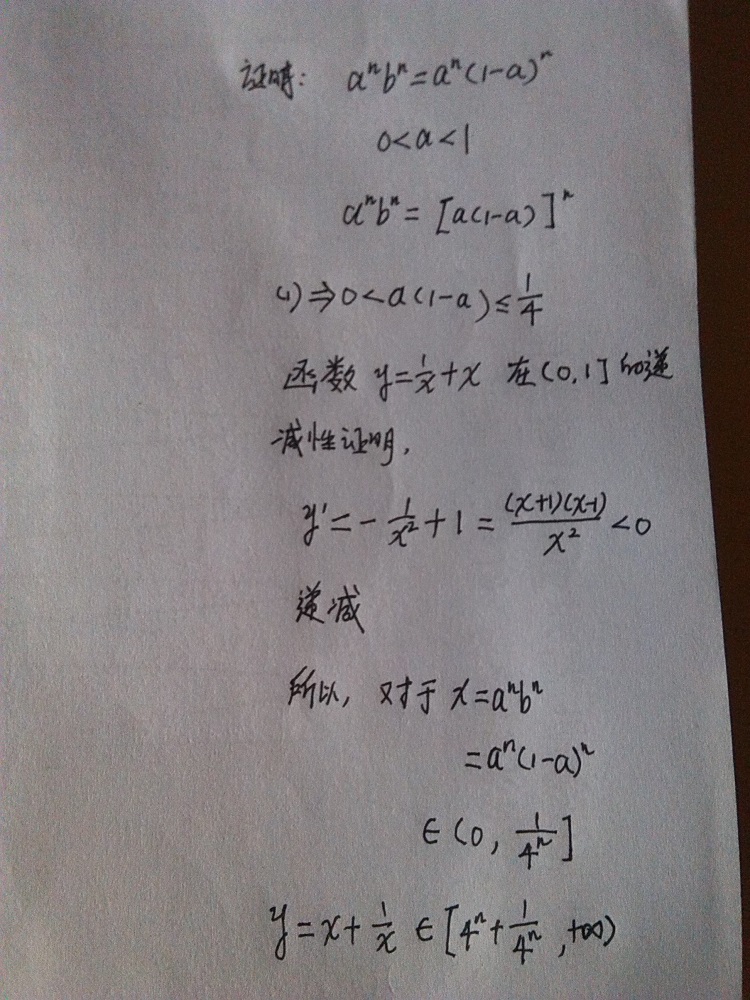 证明: aⁿbⁿ=aⁿ(1-a)ⁿ
0<a<1
aⁿbⁿ= [a(1-a)]ⁿ
(1)⇒0<a(1-a)≤1/4
函数 y=1/x+x 在(0,1]的递
减性证明,
y'=-1/x²+1=(x+1)(x-1)/x²<0
递减
所以, 对于 x=aⁿbⁿ
=aⁿ(1-a)ⁿ
∈(0, 1/4ⁿ]
y=x+1/x ∈[4ⁿ+1/4ⁿ,+∞)